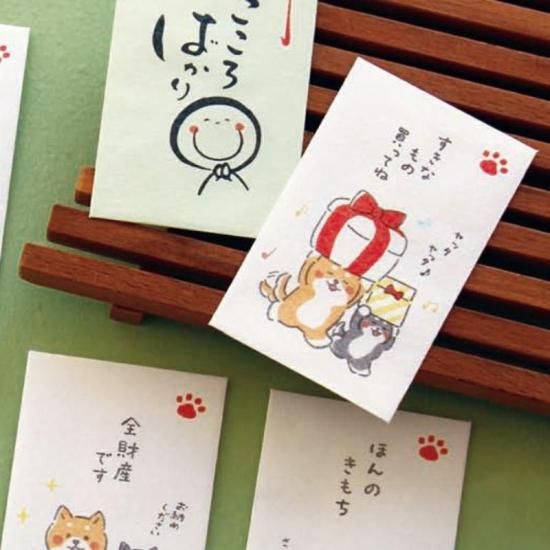 こころ
ばかり
すきな
もの
買ってね
ヤンタ
ヤンタ♪
全財産
です
お納め
ください
ほんの
きもち